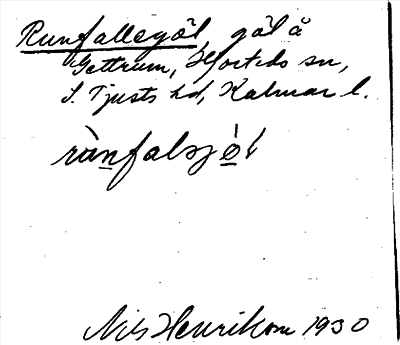 Runfallegöl göl å
Gettrum, Hjorteds sn,
S. Tjusts hd, Kalmar l.
Nils Henrikson 1930